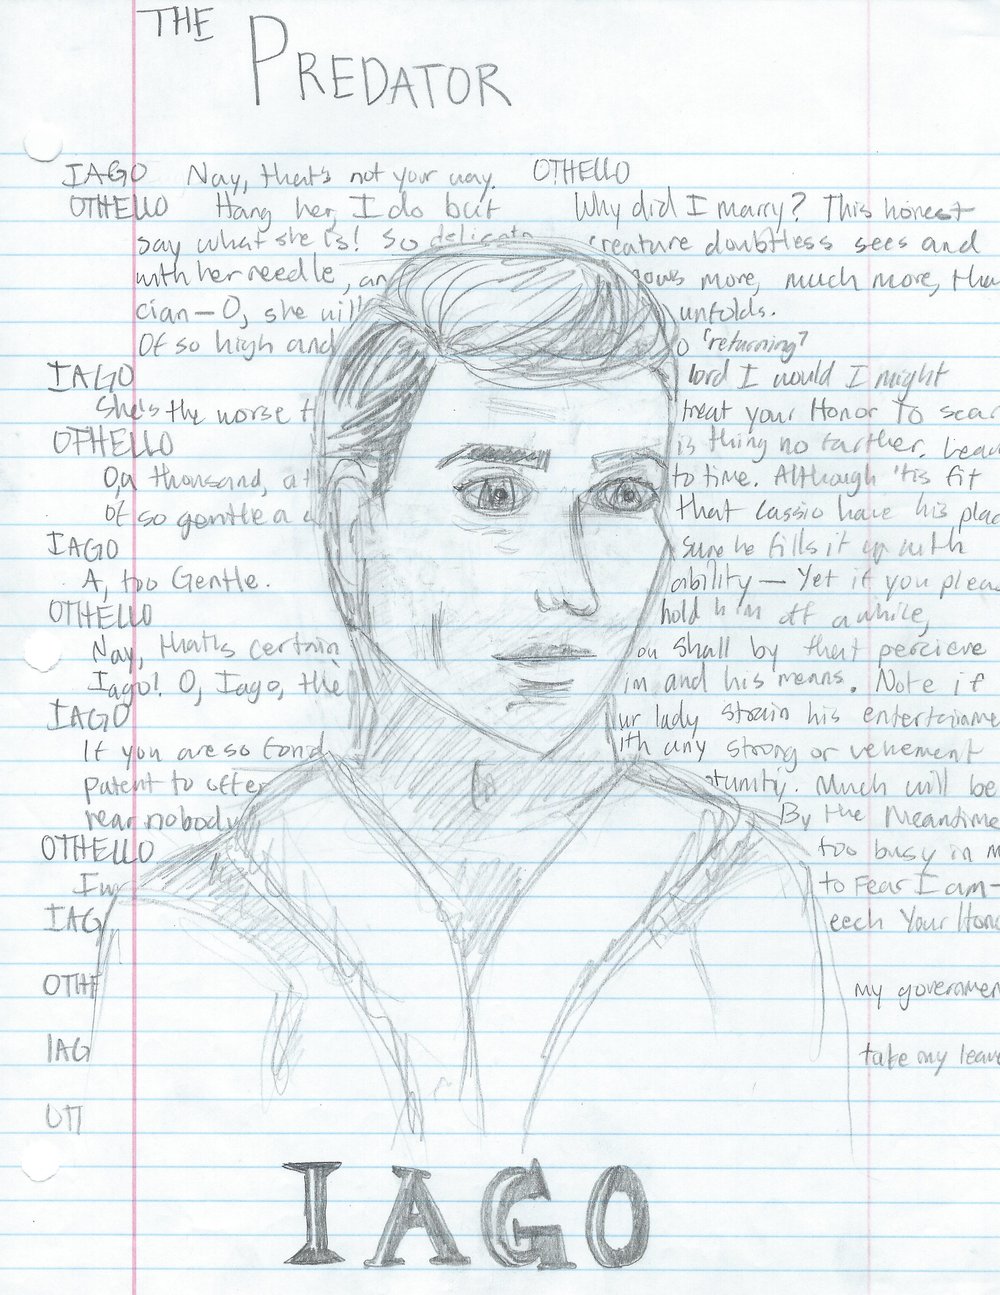 THE
PREDATOR
IAGO Nay, that's not your way.
OTHELLO Hang her, I do but
say what she is! So delicate
with her needle, an
cian— O, she will
Of so high and
IAGO
She's the worse
OTHELLO
O, a thousand, a
of so gentle a
IAGO
A, too Gentle.
OTHELLO
Nay, that's certain
Iago! O, Iago, the
IAGO
If you are so fond
patent to offer
near nobody
OTHELLO
I'm
IAG
OTHE
IAG
OTHELLO
Why did I marry? This honest
creature doubtless sees and
ows more, much more, tha
unfolds.
O 'returning?
lord I would I might
treat your Honor To scan
is thing no farther. Leave
to time. Although 'tis fit
that Cassio have his plac
sure he fills it up with
ability — Yet if you pleas
hold him off awhile,
ou shall by that percieve
im and his means. Note if
ur lady strain his entertainme
ith any strong or vehement
rtunity. Much will be
By the Meantime
too busy in m
to Fear I am—
eech Your Hono
my governmen
take my leave
IAGO